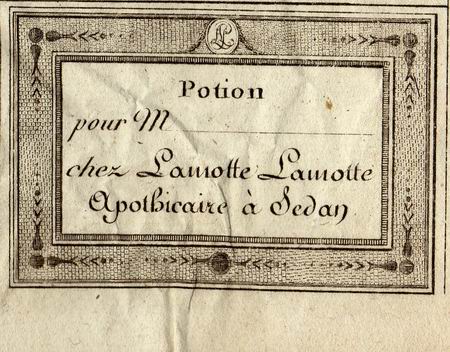 LL
Potion
pour M
chez Lamotte Lamotte
Apothicaire à Sedan